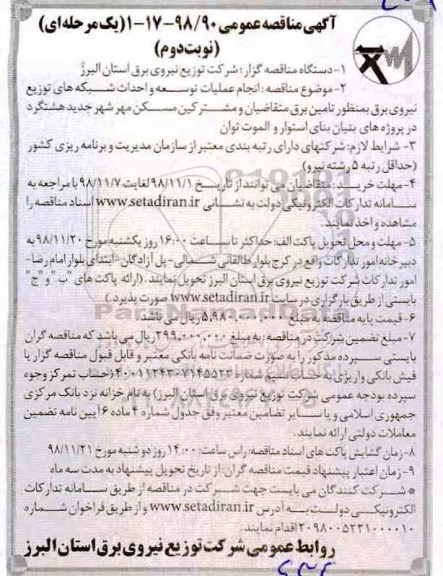 آگهی مناقصه عمومی ۹۸/۹۰-۱۷-۱(یک مرحله‌ای)
(نوبت‌دوم)
۱- دستگاه مناقصه گزار: شرکت توزیع نیروی برق استان البرز
۲- موضوع مناقصه: انجام عملیات توسعه و احداث شبکه های توزیع
نیروی برق بمنظور تامین برق متقاضیان و مشترکین مسکن مهر شهر جدید هشتگرد
در پروژه های بتیان بنای استوار و الموت توان
۳- شرایط لازم: شرکتهای دارای رتبه بندی معتبر از سازمان مدیریت و برنامه ریزی کشور
(حداقل رتبه ۵ رشته نیرو)
۴- مهلت خرید: متقاضیان می توانند از تاریخ ۹۸/۱۱/۱ لغایت ۹۸/۱۱/۷ با مراجعه به
سامانه تدارکات الکترونیکی دولت به نشانی www.setadiran.ir اسناد مناقصه را
مشاهده و اخذ نمایند.
۵- مهلت و محل تحویل پاکت الف: حداکثر تا ساعت ۱۶:۰۰ روز یکشنبه مورخ ۹۸/۱۱/۲۰ به
دبیرخانه امور تدارکات واقع در کرج بلوار طالقانی شمالی- پل آزادگان- ابتدای بلوار امام رضا-
امور تدارکات شرکت توزیع نیروی برق استان البرز تحویل نمایند. (ارائه پاکت های "ب" و "ج"
بایستی از طریق بارگزاری در سایت www.setadiran.ir صورت پذیرد.)
۶- قیمت پایه مناقصه به مبلغ ریال می باشد.
۷- مبلغ تضمین شرکت در مناقصه: به مبلغ ۲۹۹،۰۰۰،۰۰۰ ریال می باشد که مناقصه گران
بایستی سپرده مذکور را به صورت ضمانت نامه بانکی معتبر و قابل قبول مناقصه گزار یا
فیش بانکی واریزی به حساب سیبا شماره (حساب تمرکز وجوه
سپرده بودجه عمومی شرکت توزیع نیروی برق استان البرز) به نام خزانه نزد بانک مرکزی
جمهوری اسلامی و یا سایر تضامین معتبر وفق جدول شماره ۴ ماده ۶ آیین نامه تضمین
معاملات دولتی ارائه نمایند.
۸- زمان گشایش پاکت های اسناد مناقصه: راس ساعت ۱۴:۰۰ روز دوشنبه مورخ ۹۸/۱۱/۲۱
۹- زمان اعتبار پیشنهاد قیمت مناقصه گران: از تاریخ تحویل پیشنهاد به مدت سه ماه
* شرکت کنندگان می بایست جهت شرکت در مناقصه از طریق سامانه تدارکات
الکترونیکی دولت به آدرس www.setadiran.ir و از طریق فراخوان شماره
۲۰۹۸۰۰۵۲۲۱۰۰۰۰۱۰ اقدام نمایند.
روابط عمومی شرکت توزیع نیروی برق استان البرز